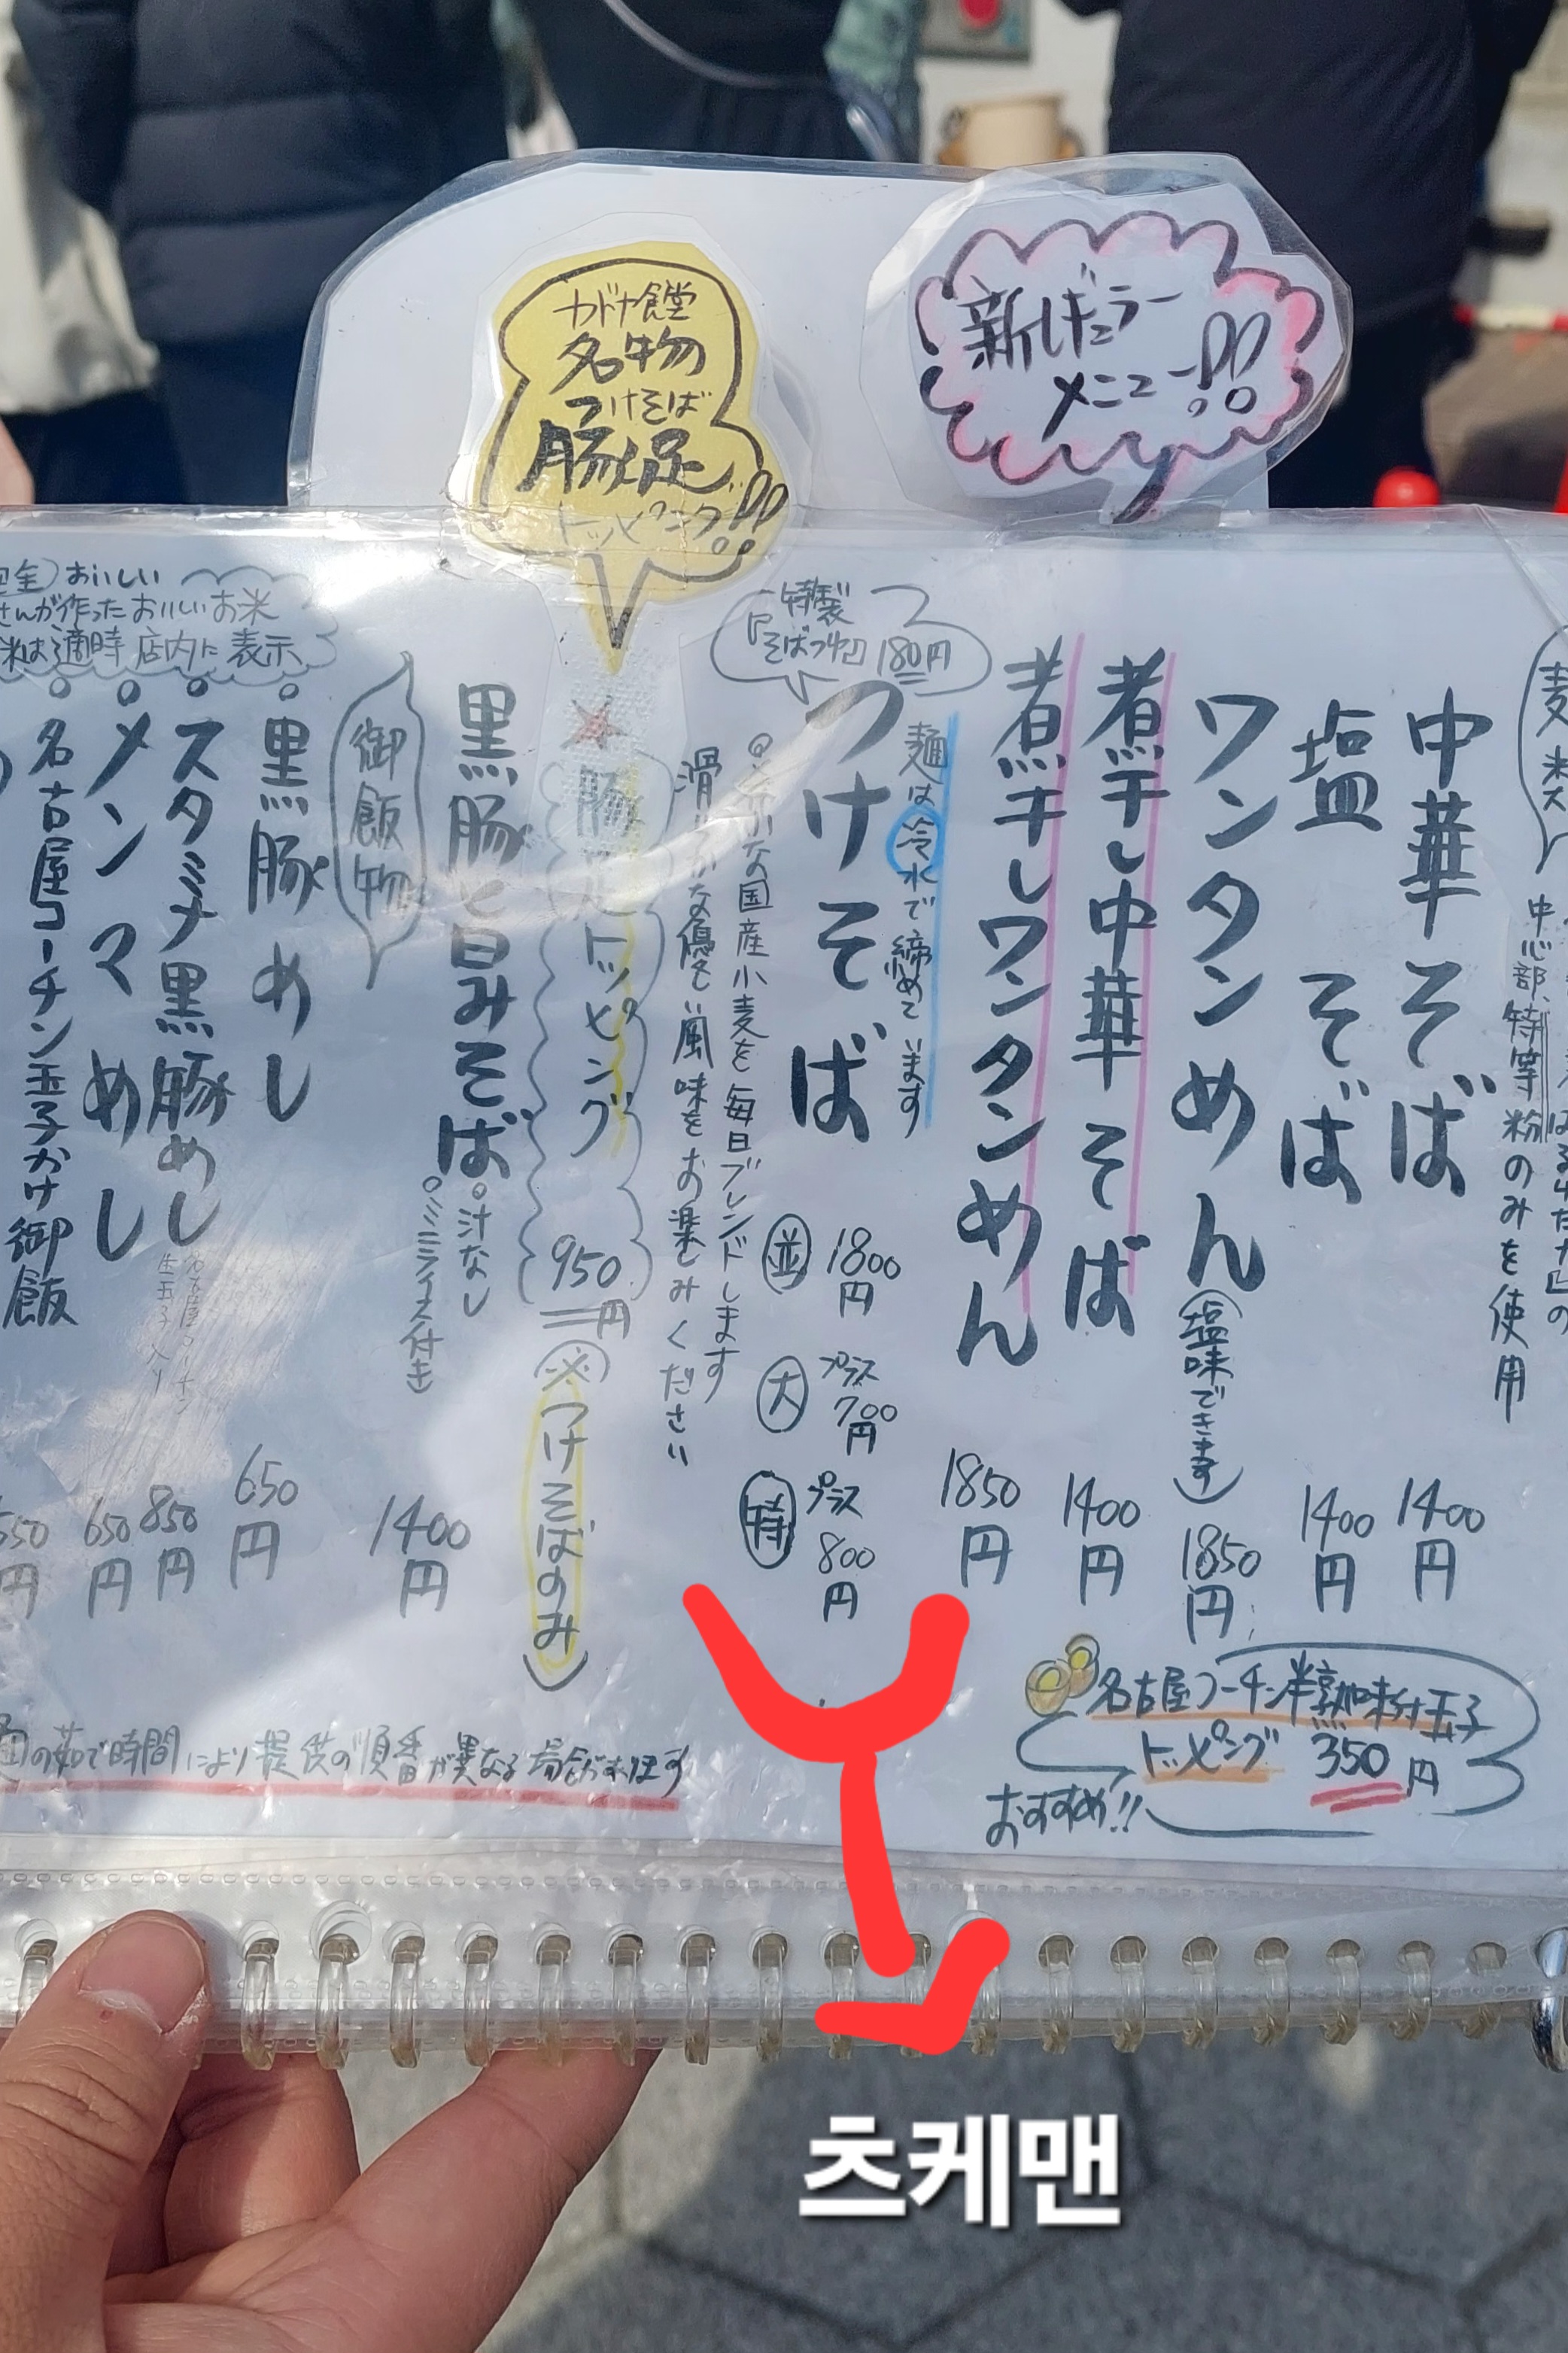 カドヤ食堂
名物
つけそば
豚足
トッピング!!
新レギュラー
メニュー!!
中心部、特等粉のみを使用
中華そば
1400円
塩そば
1400円
ワンタンめん(塩味できます)
1850円
煮干し中華そば
1400円
煮干しワンタンめん
1850円
特製
『そばつゆ』180円
麺は冷水で締めています
つけそば
並 1800円
大 プラス700円
特 プラス800円
な国産小麦を毎日ブレンドします
滑らかな優しい風味をお楽しみください
豚足トッピング
950円
※つけそばのみ)
黒豚と旨みそば
・汁なし
・ミニライス付き
1400円
御飯物
・黒豚めし
650円
・スタミナ黒豚めし
名古屋コーチン
生玉子入り
850円
・メンマめし
650円
・名古屋コーチン玉子かけ御飯
おいしい
さんが作ったおいしいお米
米は適時店内に表示
の茹で時間により提供の順番が異なる場合があります
名古屋コーチン半熟味付玉子
トッピング 350円
おすすめ!!
츠케맨